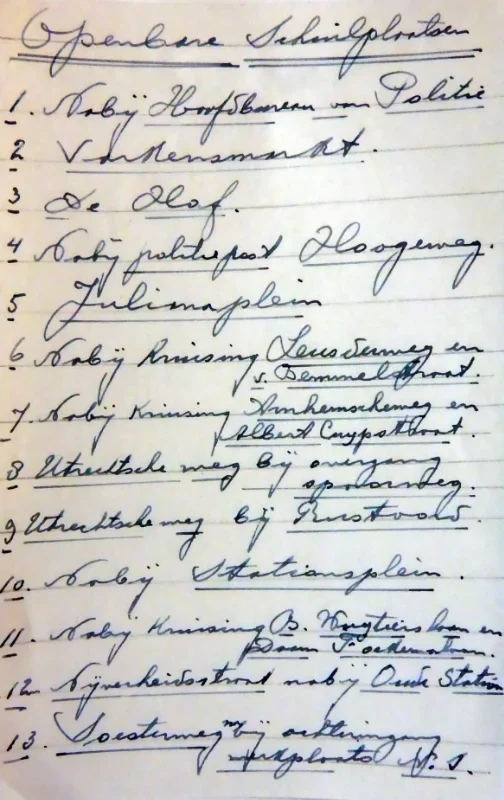 Openbare Schuilplaatsen
1. Nabij Hoofdbureau van Politie
2 Varkensmarkt.
3 De Hof.
4 Nabij politiepost Hoogeweg.
5 Julianaplein
6 Nabij Kruising Leusderweg en
v. Bemmelstraat.
7. Nabij Kruising Arnhemscheweg en
Albert Cuypstraat.
8 Utrechtsche weg bij overgang
spoorweg.
9 Utrechtsche weg bij Rustoord.
10. Nabij Stationsplein.
11. Nabij Kruising B. Wuytierslaan en
Daam Fockemalaan.
12. Nijverheidsstraat nabij Oude Station
13. Soesterweg bij achteringang
werkplaats N.S.